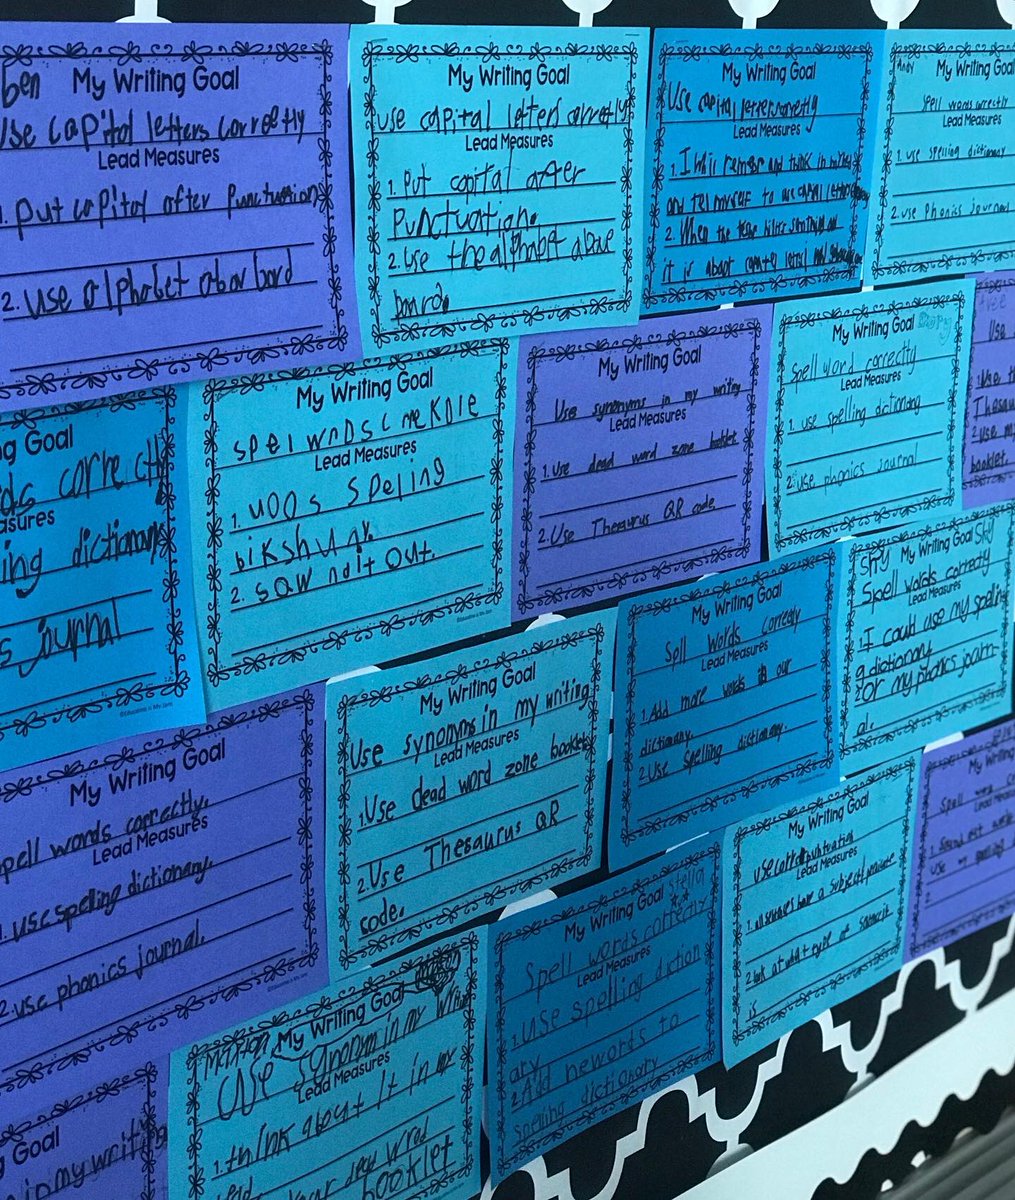 Ben
My Writing Goal
Use capital letters correctly
Lead Measures
1. Put capital after Punctuation
2. Use alphabet
My Writing Goal
use capital letters correctly
Lead Measures
1. Put capital after
Punctuation.
2. Use the alphabet above
board.
My Writing Goal
Use capital letters correctly
Lead Measures
1. I
and tell myself to use capital letters
2. When the
it is about
Andy
My Writing Goal
Spell words correctly
Lead Measures
1. use spelling dictionary
2. use Phonics Journal
Goal
correctly
dictionary
journal
My Writing Goal
Spel
Lead Measures
1. uoos Speling
bikshunx
2. Saw ndit Out.
My Writing Goal
Use synonyms in my writing
Lead Measures
1. Use dead word zone booklet
2. Use Thesaurus QR code.
My Writing Goal
Spell word correctly
Lead Measures
1. use spelling dictionary
2. use phonics journal
Use
1. Use
2. Use
booklet.
My Writing Goal
Spell words correctly.
Lead Measures
1. use spelling dictionary.
2. use phonics journal.
My Writing Goal
Use synonyms in my writing
Lead Measures
1. Use dead word zone booklet
2. Use Thesaurus QR
code.
My Writing Goal
Spell Words correctly
Lead Measures
1. Add more words to our
dictionary.
2. Use spelling dictionary.
Sky My Writing Goal Sky
Spell words correctly
Lead Measures
1. I could use my spelling
dictionary
2 or my phonics journ-
al.
in my writing
Marion
My Writing Goal
Use synonym in my writing
Lead Measures
1. think about it in my
head
your dead word
booklet
My Writing Goal
Stella
Spell words correctly
Lead Measures
1. use spelling diction
ary
2. Add new words to
spelling dictionary
My Writing Goal
use
Lead Measures
1. all sentences have a subject
2. look at what type of sentence it
is
My Writing
Spell
Lead
1. Sound out
2. use